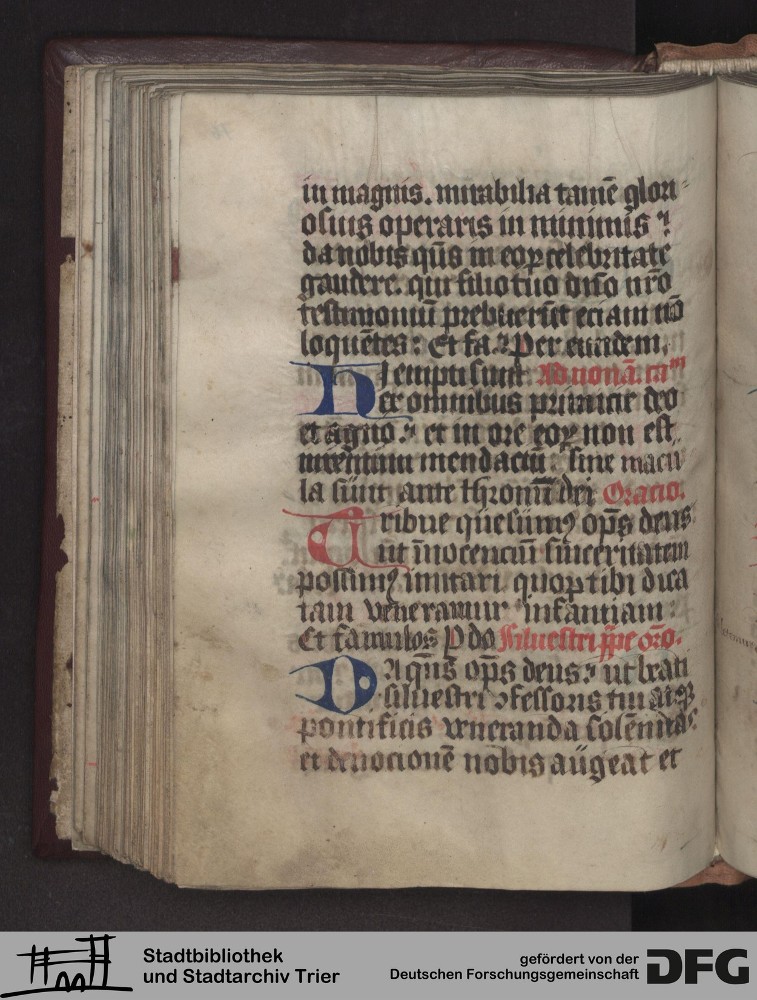 in magnis. mirabilia tamē glori
osius operaris in minimis
da nobis qūs in eoꝝ celebritate
gaudere. qui filio tuo dn̄o nr̄o
testimoniū prebuerūt eciam nō
loquētes: Et fa. Per eundem.
Hi empti sunt Ad nonā. ca᷑m
ex omnibus primicie deo
et agno. et in ore eoꝝ non est
inventum mendaciū: sine macu
la sunt ante thronū dei Oratio.
Tribue quesumꝰ op̄s deus
ut īnocenciū sinceritatem
possimꝰ imitari quoꝝ tibi dica
tam veneramur infantiam:
Et famulos P do Siluestri pp̄e or̄o.
Da qūs op̄s deus ut beati
siluestri ꝯfessoris tui atqꝫ
pontificis veneranda solēnitas
et deuocionē nobis augeat et
Stadtbibliothek
und Stadtarchiv Trier
gefördert von der
Deutschen Forschungsgemeinschaft
DFG